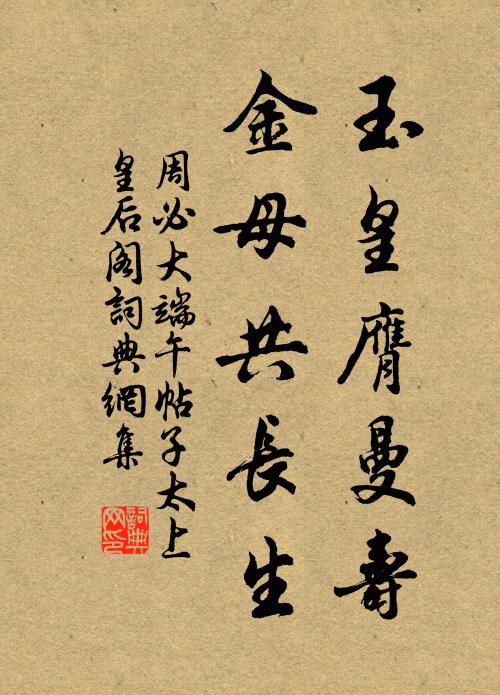 玉皇膺曼壽
金母共長生
周必大端午帖子太上
皇后阁詞典網集
詞典网印